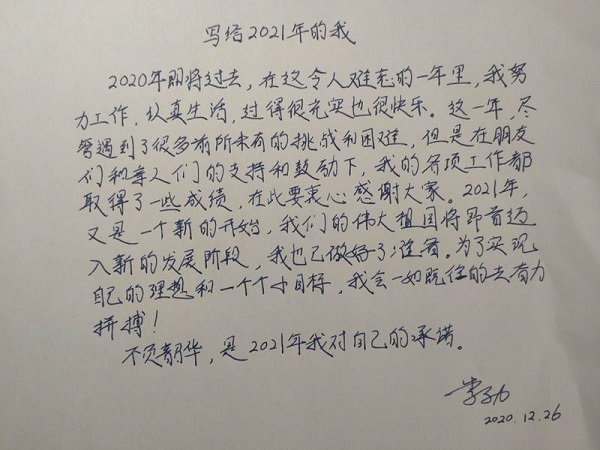 写给2021年的我
2020年即将过去，在这令人难忘的一年里，我努
力工作，认真生活，过得很充实也很快乐。这一年，尽
管遇到了很多前所未有的挑战和困难，但是在朋友
们和亲人们的支持和鼓励下，我的各项工作都
取得了一些成绩，在此要衷心感谢大家。2021年，
又是一个新的开始，我们的伟大祖国将昂首迈
入新的发展阶段，我也已做好了准备。为了实现
自己的理想和一个个小目标，我会一如既往的去奋力
拼搏！
不负韶华，是2021年我对自己的承诺。
李子力
2020.12.26